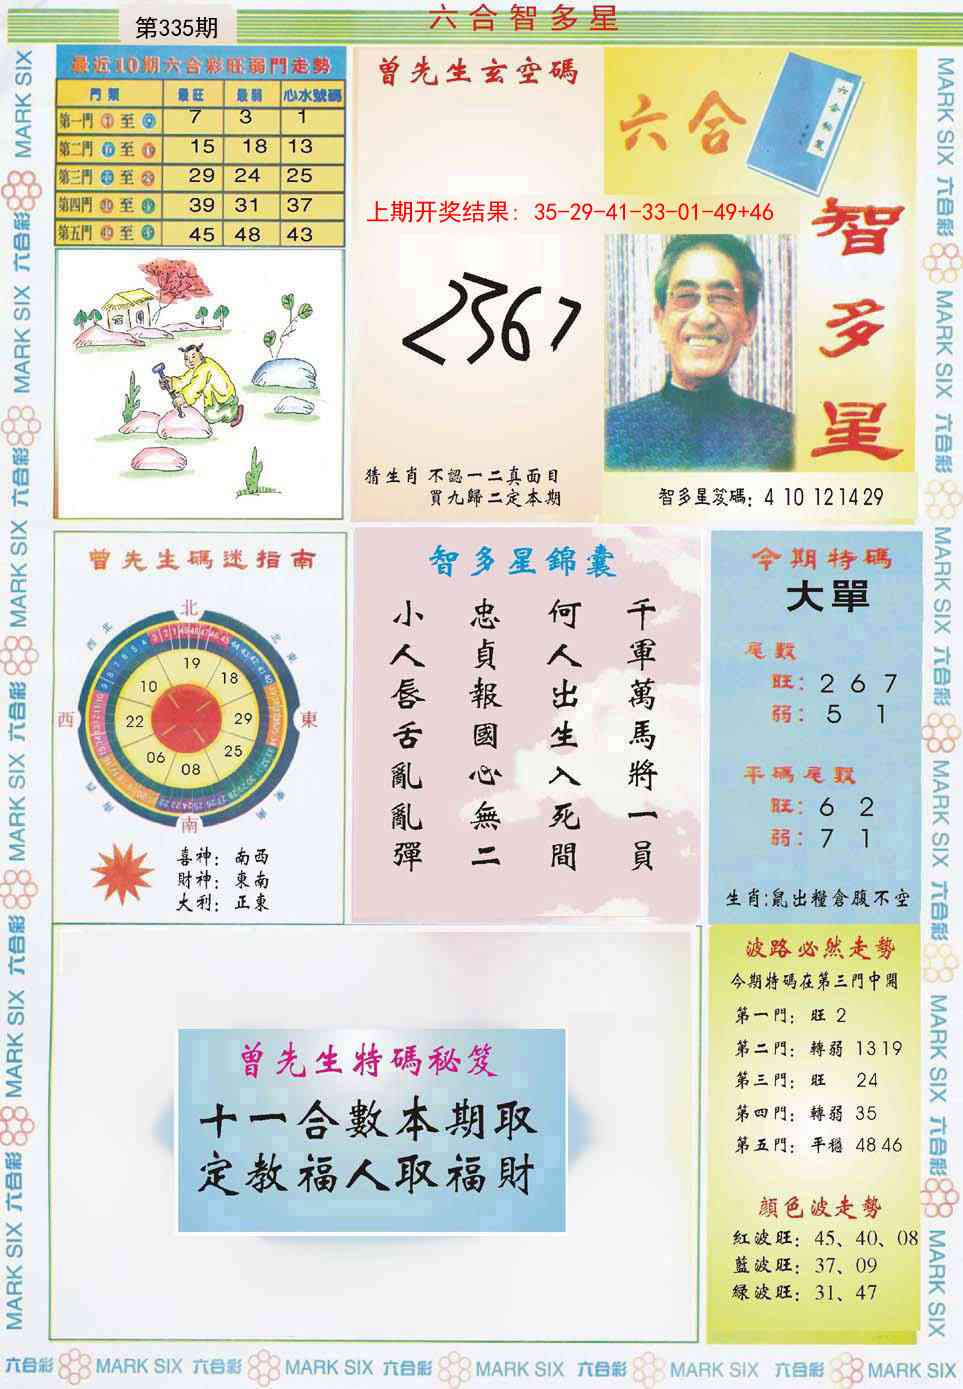 第335期
六合智多星
最近10期六合彩旺弱門走勢
門類 最旺 最弱 心水號碼
第一門 至 7 3 1
第二門 至 15 18 13
第三門 至 29 24 25
第四門 至 39 31 37
第五門 至 45 48 43
曾先生玄空碼
上期开奖结果：35-29-41-33-01-49+46
2367
猜生肖 不認一二真面目
買九歸二定本期
六合
智多星
智多星笈碼：4 10 12 14 29
曾先生碼迷指南
北
東
南
西
19
18
29
25
08
06
22
10
喜神：南西
財神：東南
大利：正東
智多星錦囊
千軍萬馬將一員
何人出生入死間
忠貞報國心無二
小人唇舌亂亂彈
今期特碼
大單
尾數
旺：2 6 7
弱：5 1
平碼尾數
旺：6 2
弱：7 1
生肖:鼠出糧倉腹不空
曾先生特碼秘笈
十一合數本期取
定教福人取福財
波路必然走勢
今期特碼在第三門中開
第一門：旺 2
第二門：轉弱 13 19
第三門：旺 24
第四門：轉弱 35
第五門：平穩 48 46
顔色波走勢
紅波旺：45、40、08
藍波旺：37、09
綠波旺：31、47
MARK SIX 六合彩 MARK SIX 六合彩 MARK SIX 六合彩 MARK SIX 六合彩 MARK SIX 六合彩 MARK SIX
MARK SIX 六合彩 MARK SIX 六合彩 MARK SIX 六合彩 MARK SIX 六合彩 MARK SIX 六合彩 MARK SIX
六合彩 MARK SIX 六合彩 MARK SIX 六合彩 MARK SIX 六合彩 MARK SIX 六合彩 MARK SIX